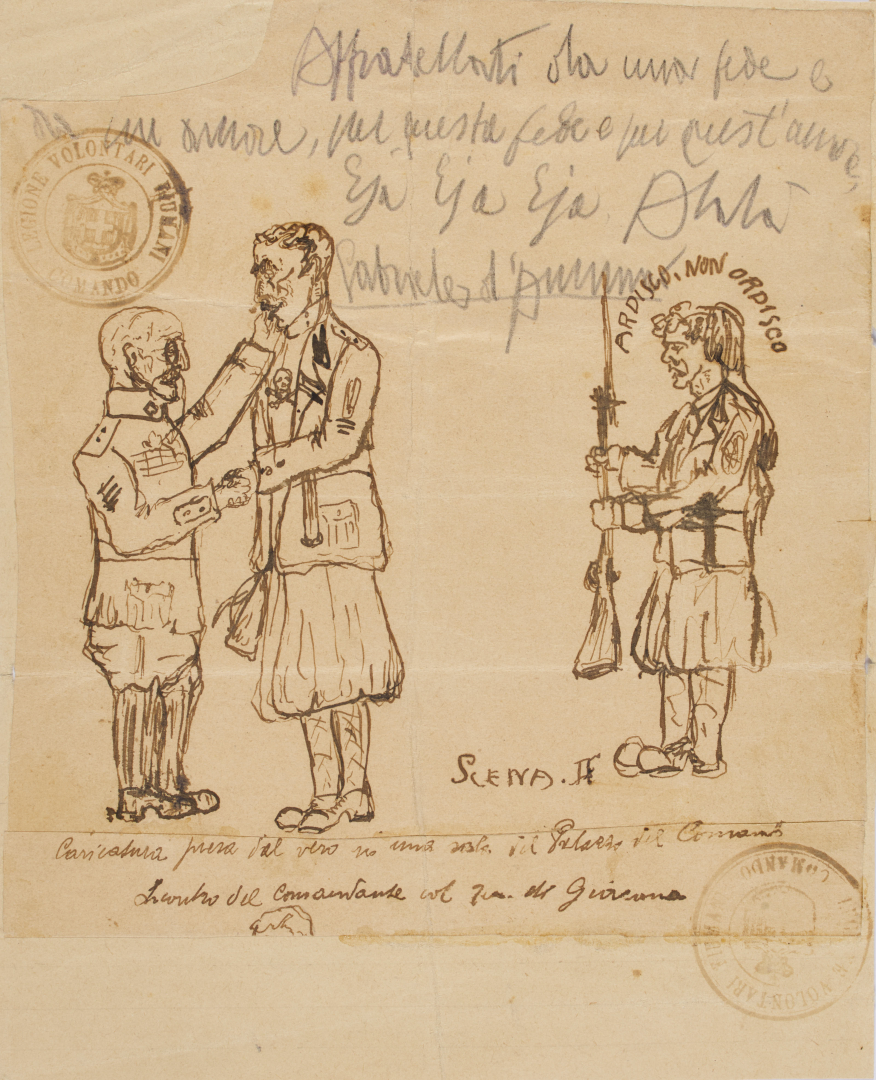 Affratellati da una fede e
da un amore, per questa fede e per quest'amore,
Eja Eja Eja Alalà
Gabriele d'Annunzio
LEGIONE VOLONTARI FIUMANI
COMANDO
ARDISCO, NON ORDISCO
SCENA. II
Caricatura presa dal vero in una sala del Palazzo del Comando
Incontro del comandante col di
COMANDO
VOLONTARI